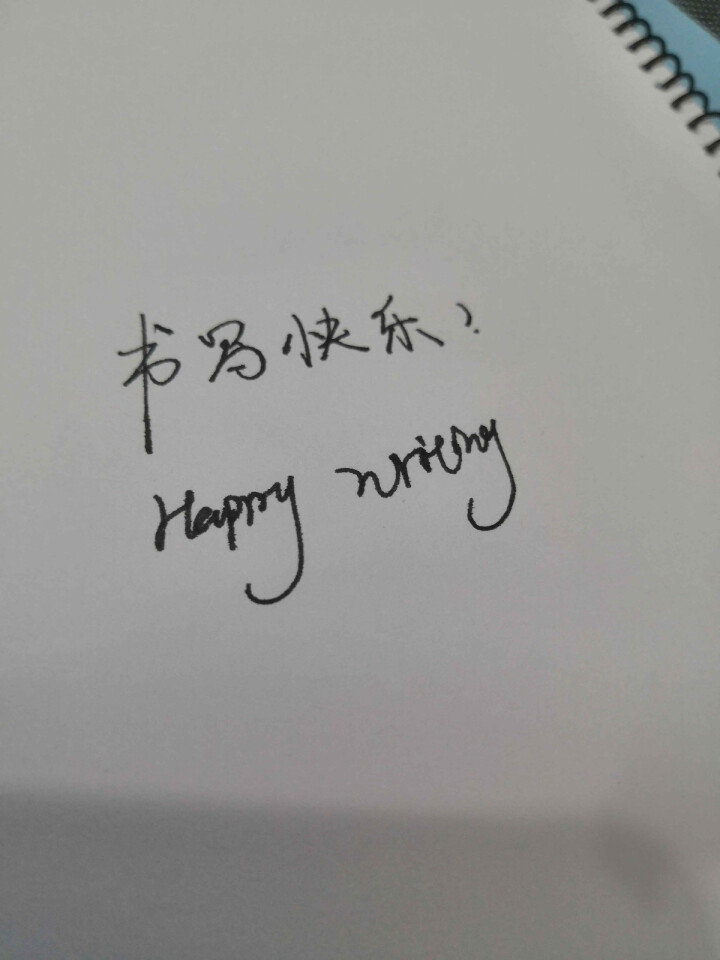 书写快乐？
Happy writing